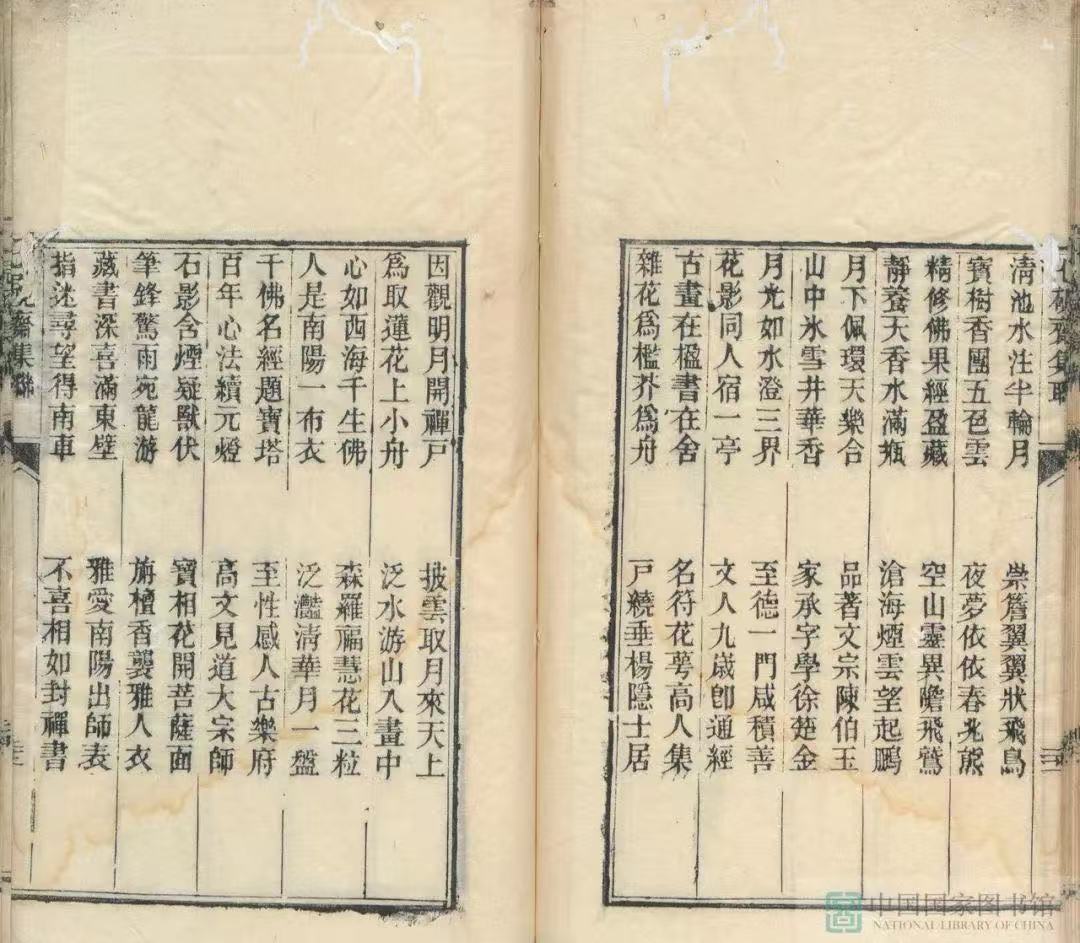 清池水注半輪月　崇簷翼翼狀飛鳥
寶樹香團五色雲　夜夢依依春兆熊
精修佛果經盈藏　空山靈異瞻飛鷲
靜養天香水滿瓶　滄海煙雲望起鵬
月下佩環天樂合　品著文宗陳伯玉
山中氷雪井華香　家承字學徐楚金
月光如水澄三界　至德一門咸積善
花影同人宿一亭　文人九歲卽通經
古畫在楹書在舍　名符花萼高人集
雜花爲檻芥爲舟　戸繞垂楊隱士居
因觀明月開禪戸　披雲取月來天上
爲取蓮花上小舟　泛水游山入畫中
心如西海千生佛　森羅福慧花三粒
人是南陽一布衣　泛灩清華月一盤
千佛名經題寶塔　至性感人古樂府
百年心法續元燈　高文見道大宗師
石影含煙疑獸伏　寶相花開菩薩面
筆鋒驚雨宛龍游　旃檀香襲雅人衣
藏書深喜滿東壁　雅愛南陽出師表
指迷尋望得南車　不喜相如封禪書
齋集聯
中国国家图书馆
NATIONAL LIBRARY OF CHINA